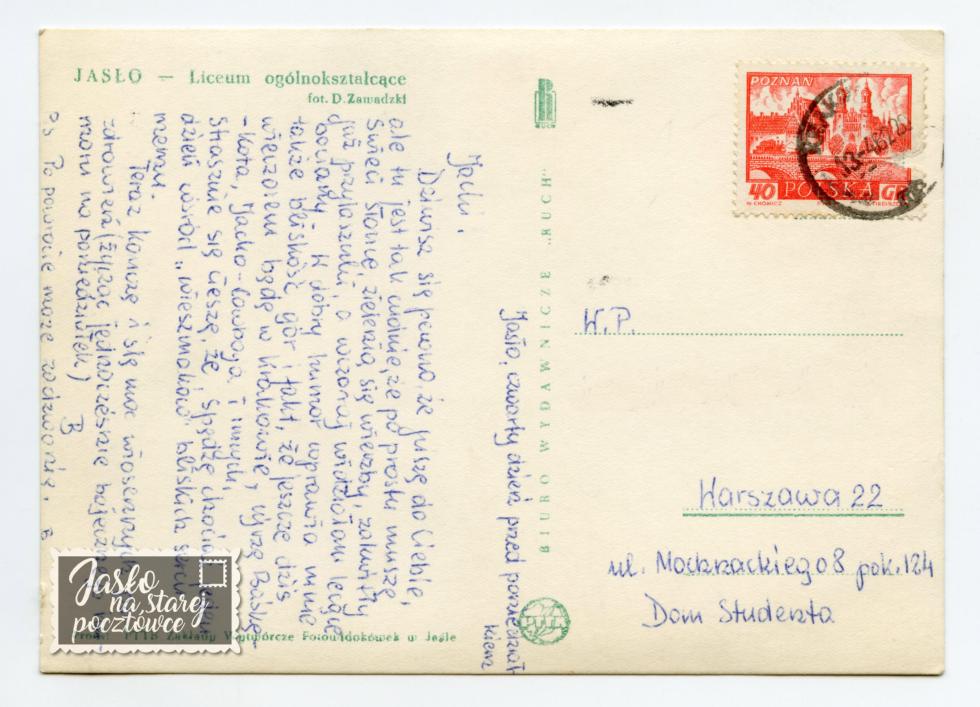 JASŁO — Liceum ogólnokształcące
fot. D. Zawadzki
Jacku.
Dziwisz się pewno, że piszę do Ciebie,
ale tu jest tak ładnie, że po prostu muszę
Świeci słońce, zielenią się wierzby, zakwitły
już przylaszczki, a wczoraj widziałam lecące
bociany. W dobry humor wprawia mnie
także bliskość gór i fakt, że jeszcze dziś
wieczorem będę w Krakowie, ujrzę Baśkę
- kota, Jacka - cowboya i innych,
Strasznie się cieszę, że spędzę choć jeden
dzień wśród „wieszmaków" bliskich sercu
memu.
Teraz kończę i ślę moc wiosennych
zdrowień (życząc jednocześnie bajecznej
mani na poniedziałek)
B
Ps Po powrocie może zadzwonię. B
Jasło, czwarty dzień przed poniedział
kiem
BIURO WYDAWNICZE „RUCH"
RUCH
PTTK
PTTK Zakłady Wytwórcze Fotowidokówek w Jaśle
POZNAŃ
40 POLSKA GR
W.CHOMICZ
W.P.
Warszawa 22
ul. Mochnackiego 8 pok. 124
Dom Studenta
Jasło
na starej
pocztówce